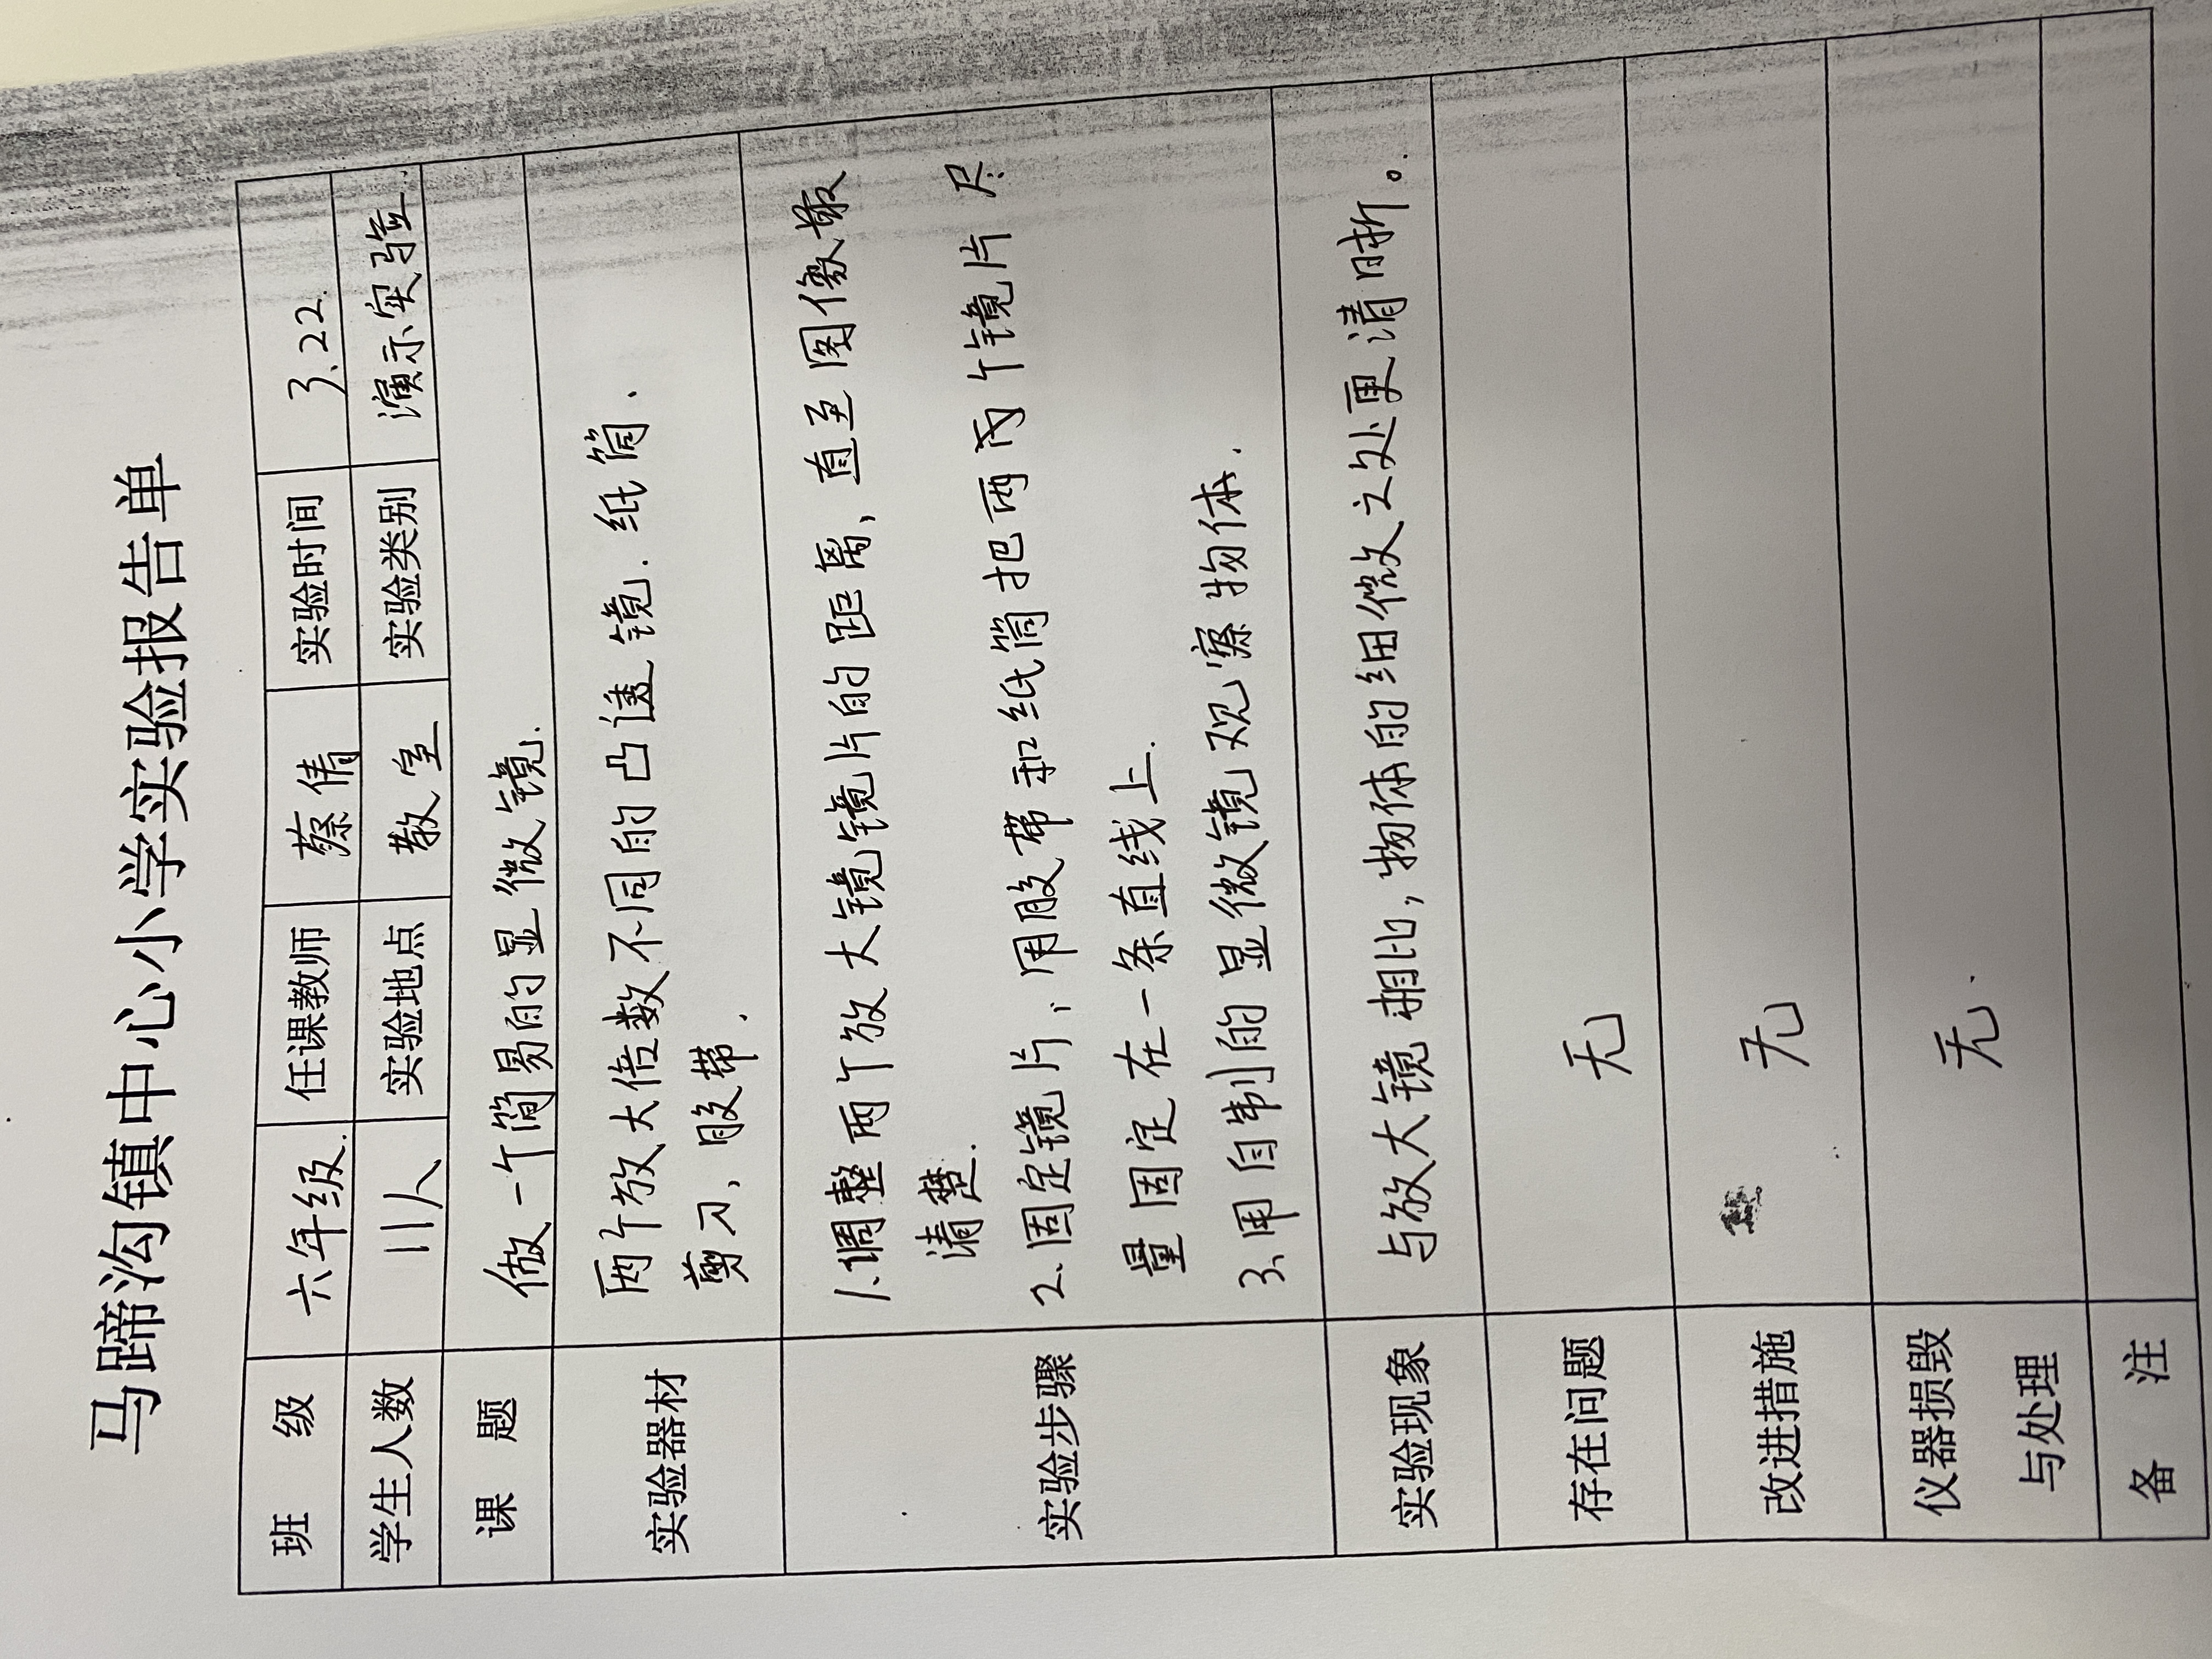 马蹄沟镇中心小学实验报告单
班 级 六年级. 任课教师 蔡倩 实验时间 3.22.
学生人数 11人 实验地点 教室 实验类别 演示实验.
课 题 做一个简易的显微镜.
实验器材
两个放大倍数不同的凸透镜.纸筒、
剪刀、胶带.
实验步骤
1.调整两个放大镜镜片的距离,直至图像最
清楚.
2.固定镜片,用胶带和纸筒把两个镜片尽
量固定在一条直线上.
3.用自制的显微镜观察物体.
实验现象 与放大镜相比,物体的细微之处更清晰。
存在问题 无
改进措施 无
仪器损毁 无.
与处理
备 注